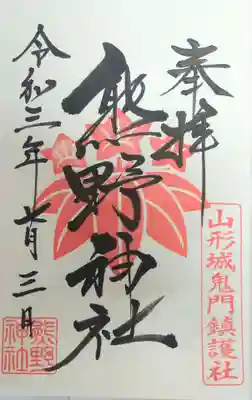 奉拝
熊野神社
令和三年七月三日
山形城鬼門鎮護社
熊野神社